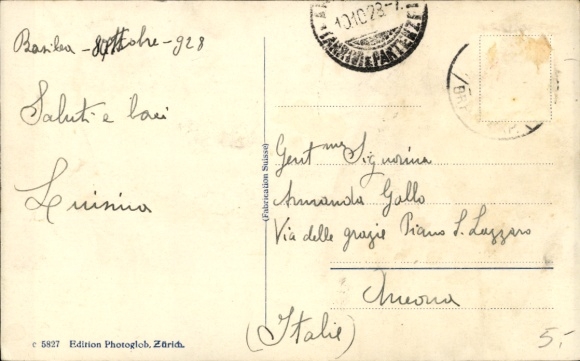 Basilea - 8 ottobre - 928
Saluti e baci
Luisina
(Fabrication Suisse)
10.10.28-7.
ARRIVI E PARTENZE
Gent.ma Signorina
Armanda Gallo
Via delle grazie Piano S. Lazzaro
Ancona
(Italie)
c 5827 Edition Photoglob, Zürich.
5.-